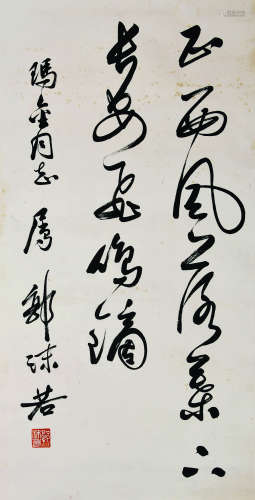 正西風落葉下
長安飛鳴鏑
瑪金同志屬 郭沫若